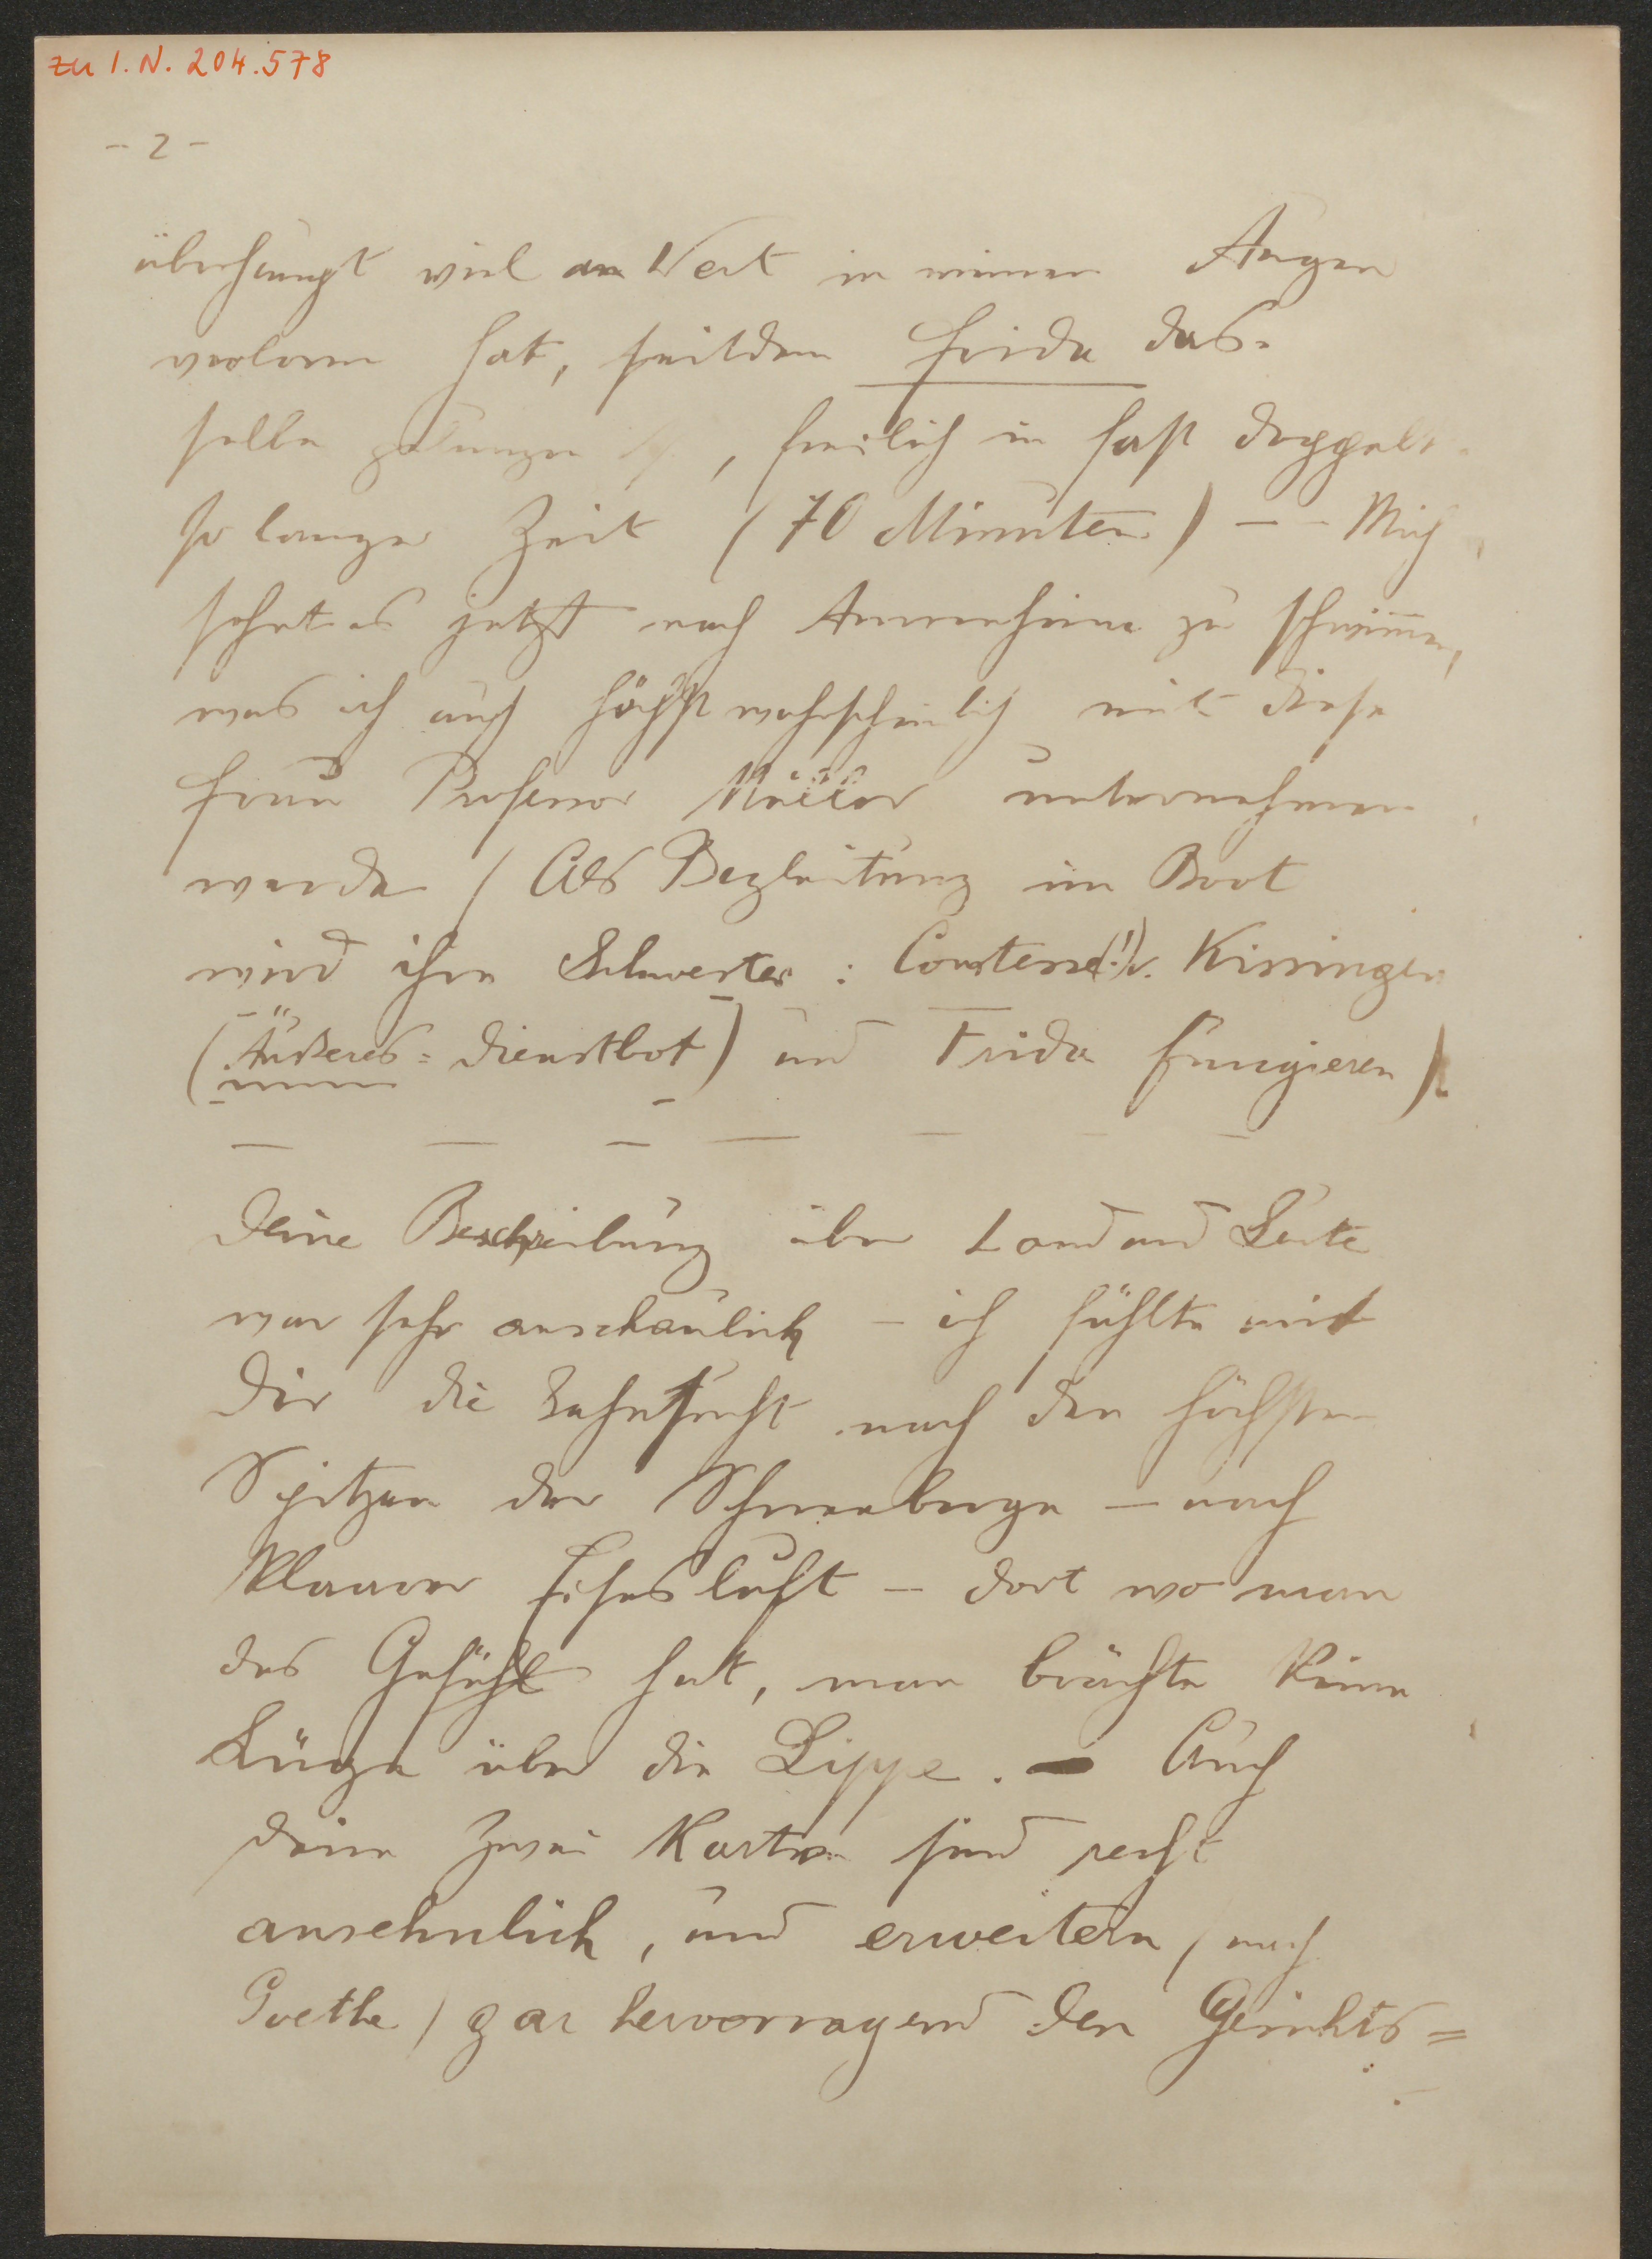 zu I. N. 204.578
- 2 -
überhaupt viel an Wert in meinen Augen
verloren hat, seitdem Frida das-
selbe gelungen ist, freilich in fast doppelt
so langer Zeit (70 Minuten) - - Mich
sehnt es jetzt nach Ammerheim zu schwimmen,
was ich auch höchst wahrscheinlich mit diese
Frau Professor Müller unternehmen
werde (Als Begleitung im Boot
wird ihre Schwester: Comtesse(!) v. Kissingen
(Äußeres = Dienstbot) und Frida fungieren).
— — — — — — —
Deine Beschreibung über Land und Leute
war sehr anschaulich - ich fühlte mit
Dir die Sehnsucht nach den höchsten
Spitzen der Schneeberge - nach
klaarer Eisesluft - dort wo man
das Gefühl hat, man brächte keine
Lüge über die Lippe. - Auch
deine zwei Karten sind recht
ansehnlich, und erweitern (nach
Goethe) gar hervorragend den Gesichts=